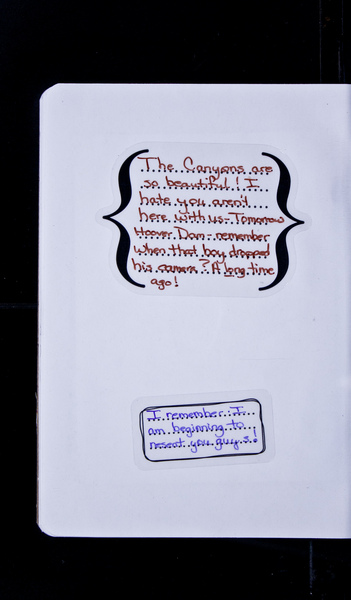 The Canyons are
so beautiful! I
hate you aren't
here with us- Tomorrow
Hoover Dam- remember
when that boy dropped
his camera? A long time
ago!
I remember. I
am beginning to
resent you guys!